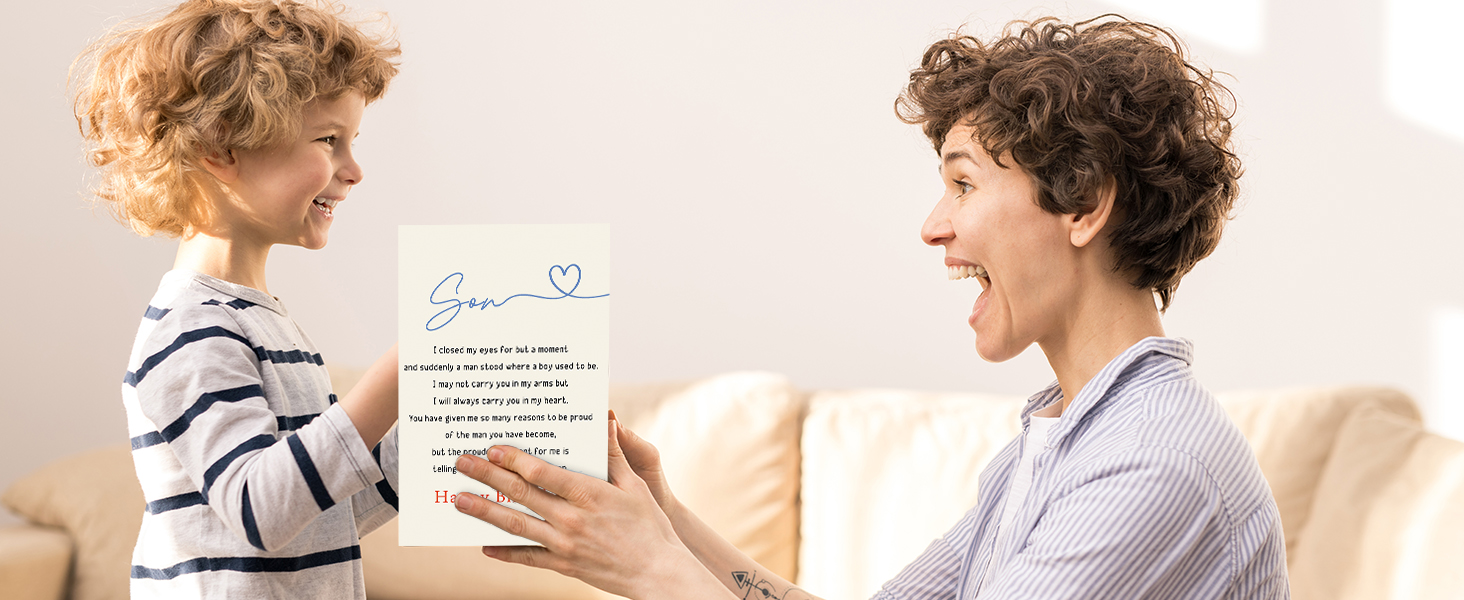 Son
I closed my eyes for but a moment
and suddenly a man stood where a boy used to be.
I may not carry you in my arms but
I will always carry you in my heart.
You have given me so many reasons to be proud
of the man you have become,
but the for me is
telling